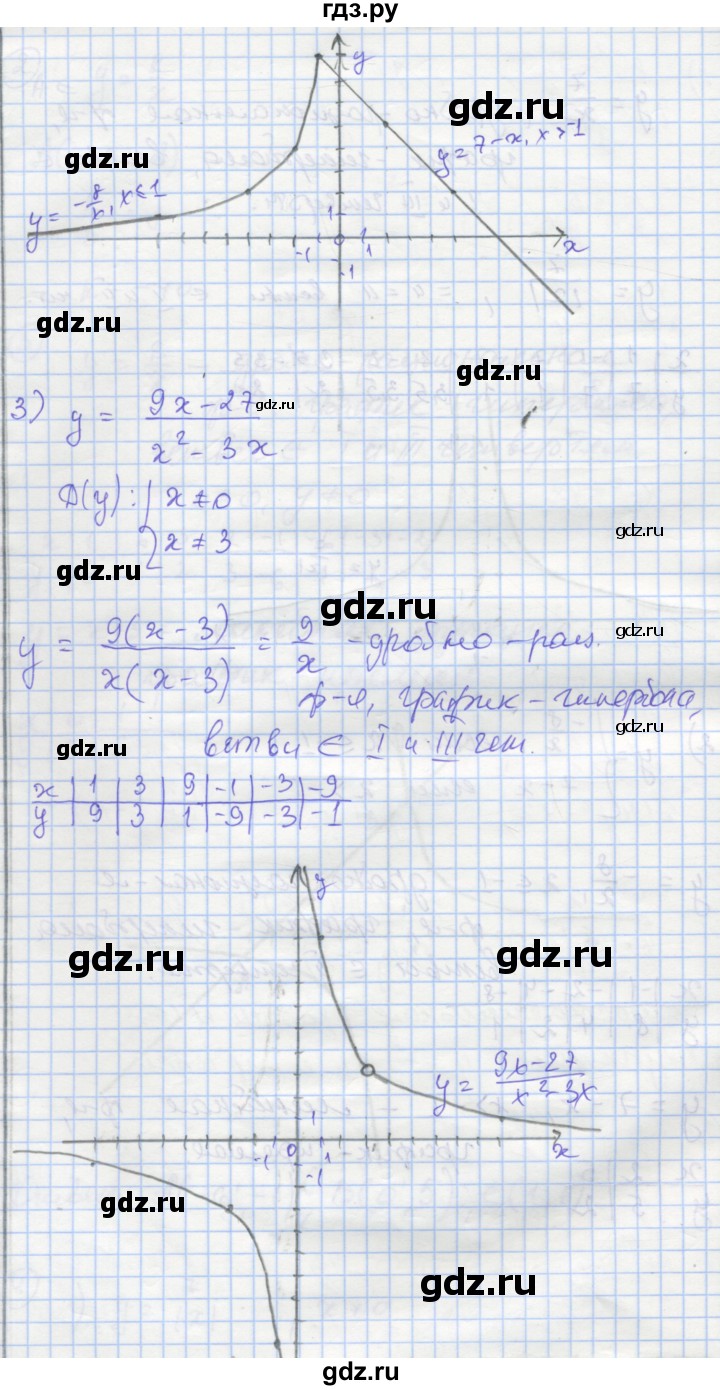 гдз.ру
y
gdz.ru
gdz.ru
y = 7 - x, x > -1
y = -8/x, x ≤ 1
1
-1 0 1 x
-1
gdz.ru
gdz.ru
3) y = (9x - 27)/(x² - 3x)
gdz.ru
D(y): { x ≠ 0
x ≠ 3
gdz.ru
gdz.ru
gdz.ru
y = 9(x - 3)/(x(x - 3)) = 9/x - дробно - рац.
gdz.ru
ф-я, график - гипербола,
gdz.ru
ветви ∈ I и III чет.
gdz.ru
x | 1 | 3 | 9 | -1 | -3 | -9
y | 9 | 3 | 1 | -9 | -3 | -1
y
gdz.ru
gdz.ru
y = (9x - 27)/(x² - 3x)
1
-1 0 1 x
-1
gdz.ru
gdz.ru
gdz.ru